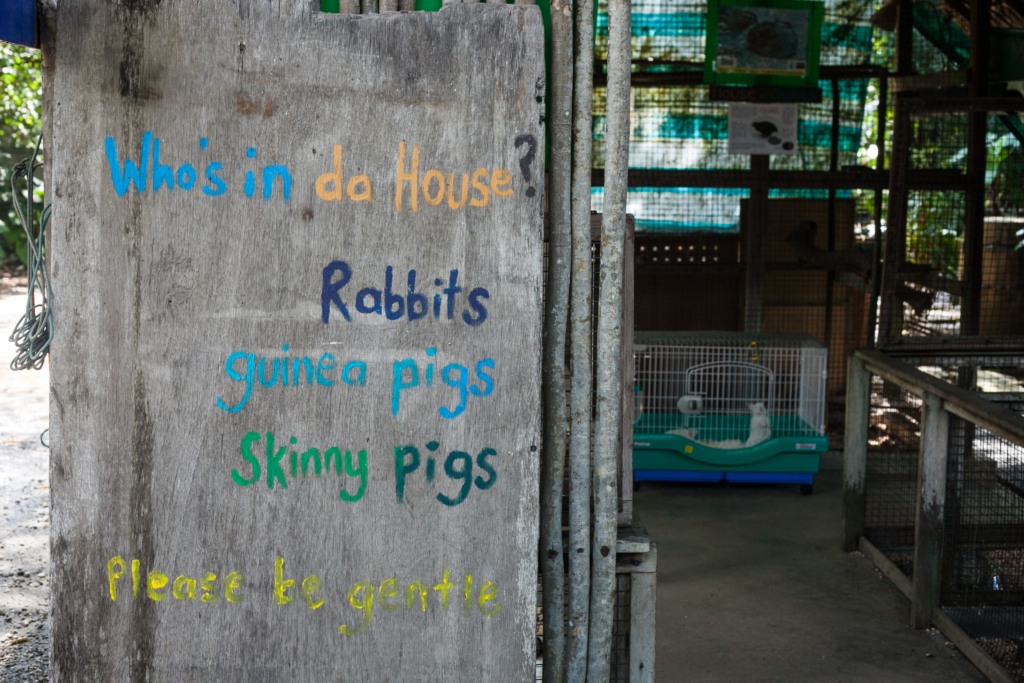 Who's in da House?
Rabbits
guinea pigs
Skinny pigs
Please be gentle